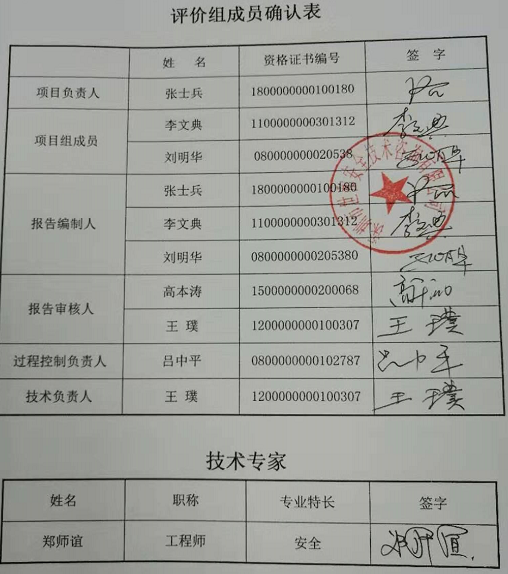 评价组成员确认表
姓 名 资格证书编号 签 字
项目负责人 张士兵 1800000000100180
项目组成员 李文典 1100000000301312 李文典
刘明华 080000000020538 刘明华
报告编制人 张士兵 1800000000100180
李文典 1100000000301312 李文典
刘明华 0800000000205380 刘明华
报告审核人 高本涛 1500000000200068
王 璞 1200000000100307 王 璞
过程控制负责人 吕中平 0800000000102787 吕中平
技术负责人 王 璞 1200000000100307 王 璞
技术专家
姓名 职称 专业特长 签字
郑师谊 工程师 安全